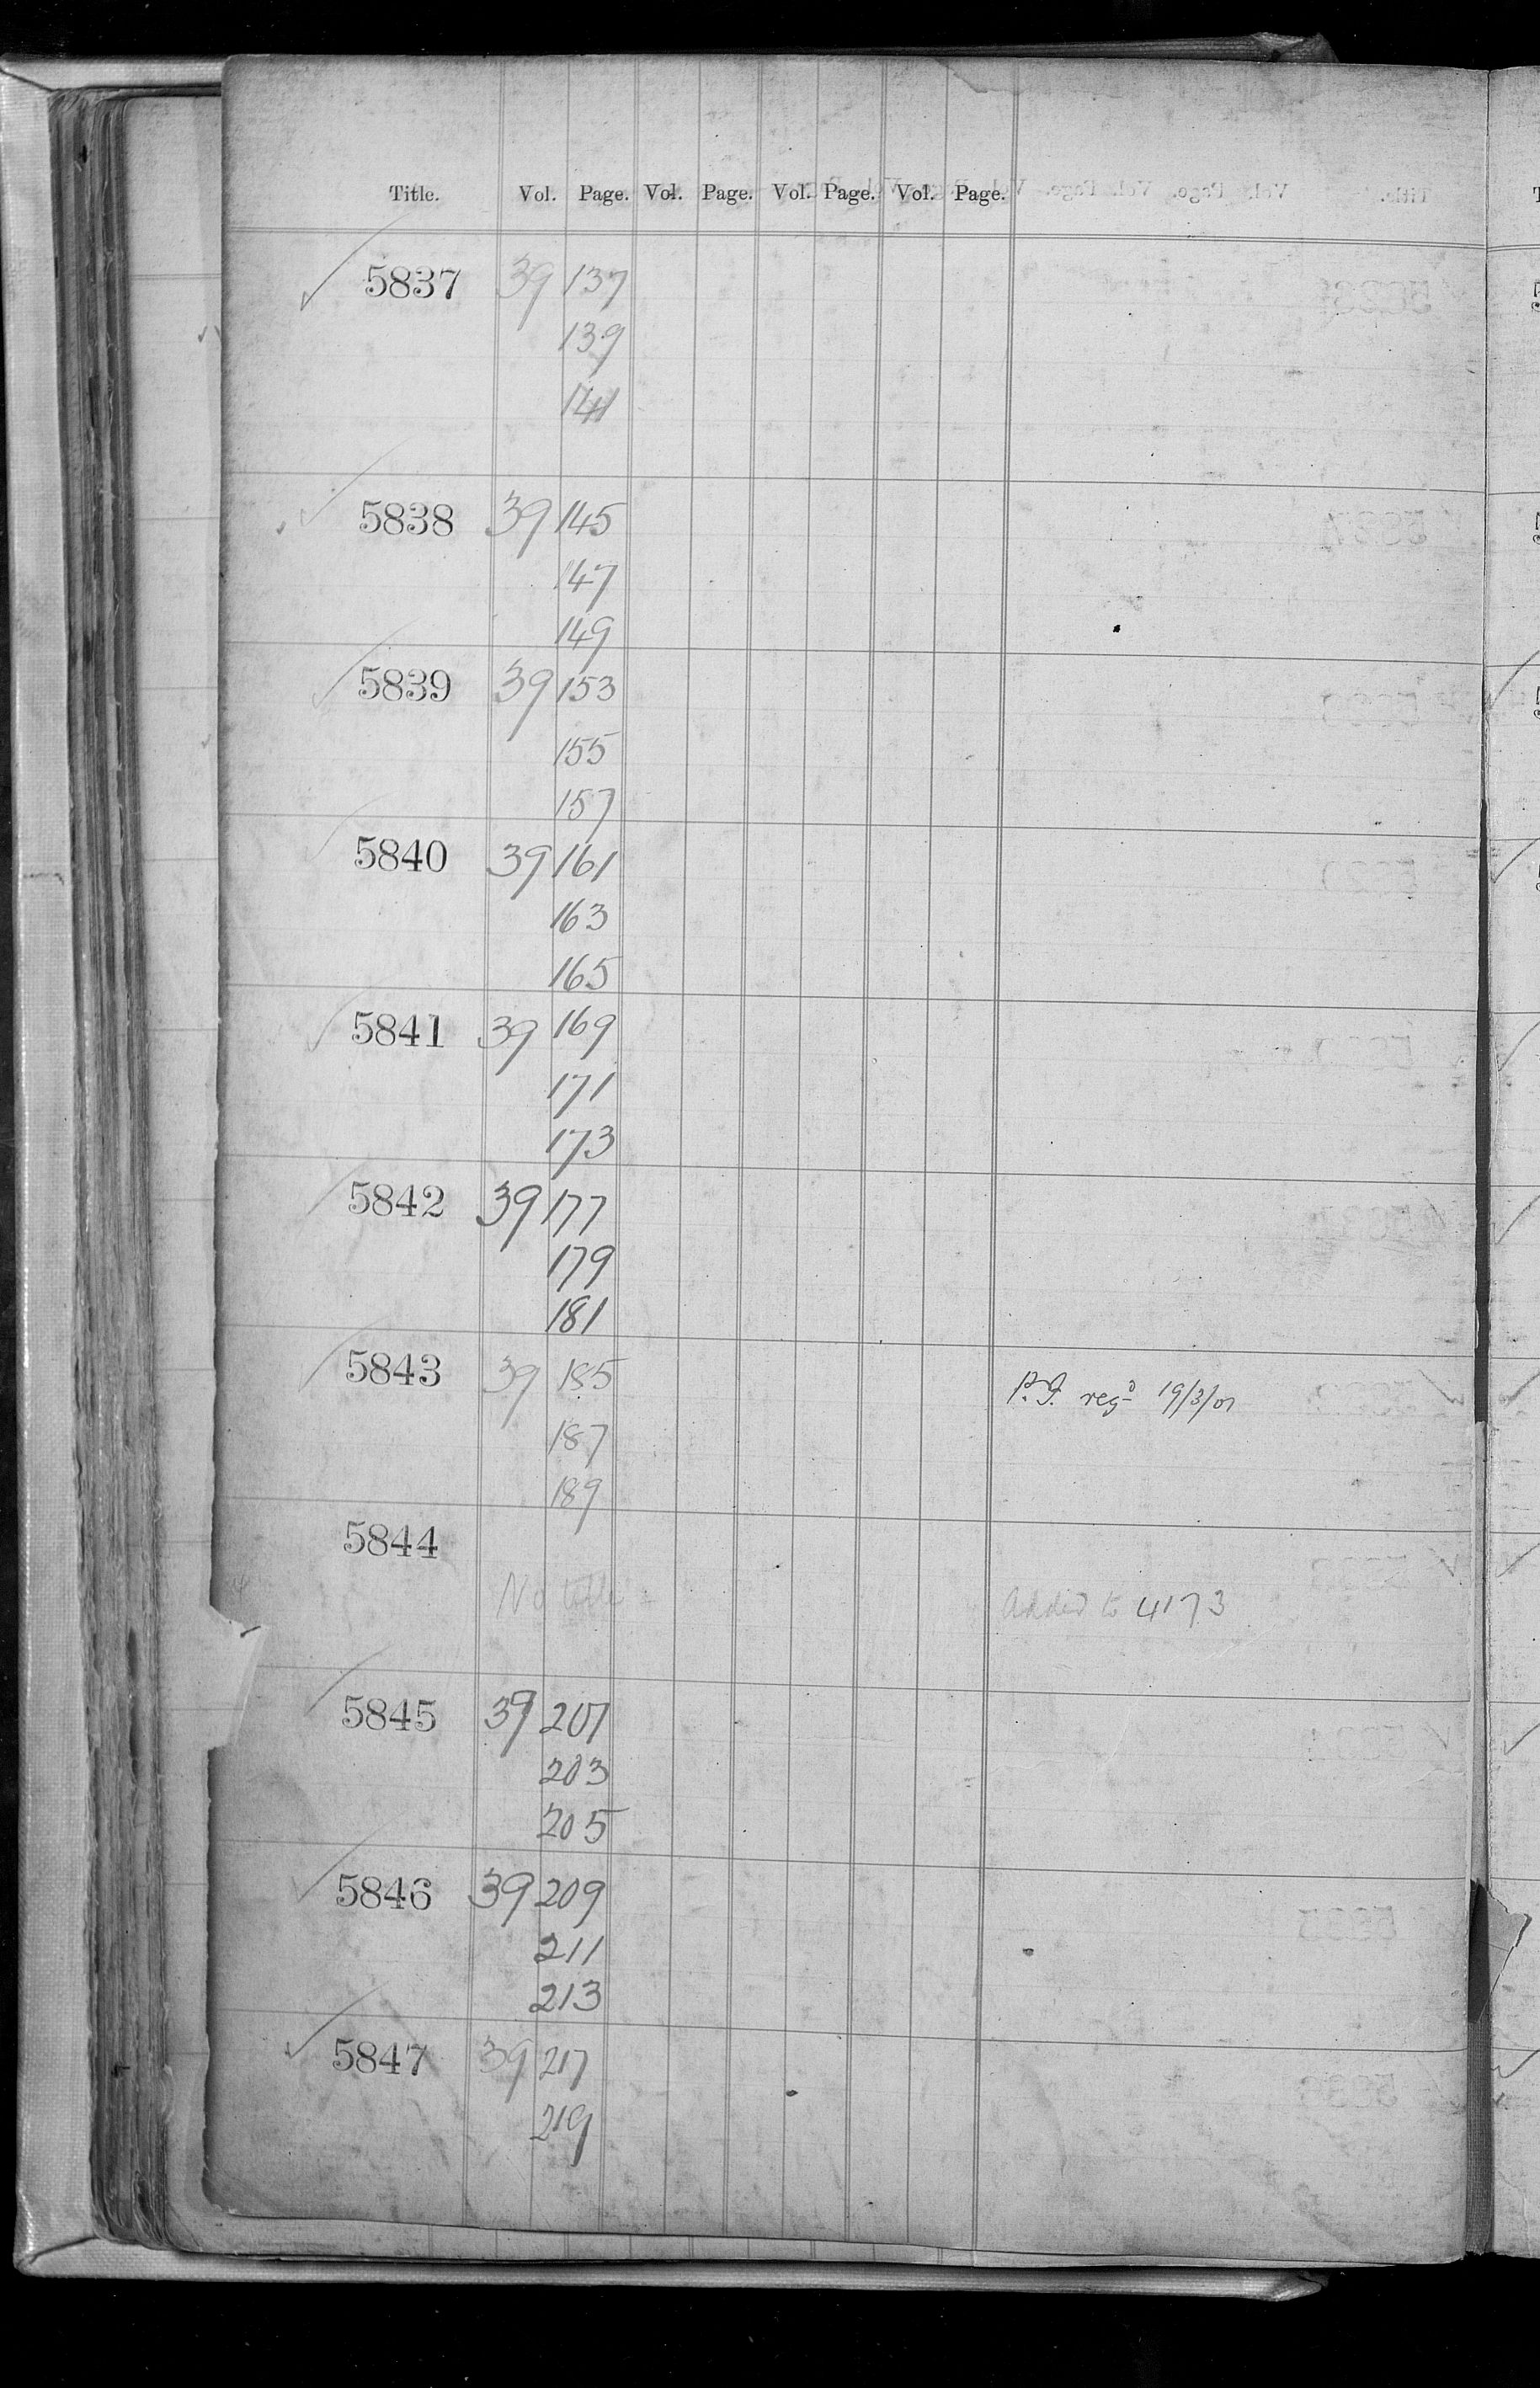 Title. Vol. Page. Vol. Page. Vol. Page. Vol. Page.
5837 39 137
139
141
5838 39 145
147
149
5839 39 153
155
157
5840 39 161
163
165
5841 39 169
171
173
5842 39 177
179
181
5843 39 185 P.I. regd 19/3/01
187
189
5844
No title Added to 4173
5845 39 201
203
205
5846 39 209
211
213
5847 39 217
219